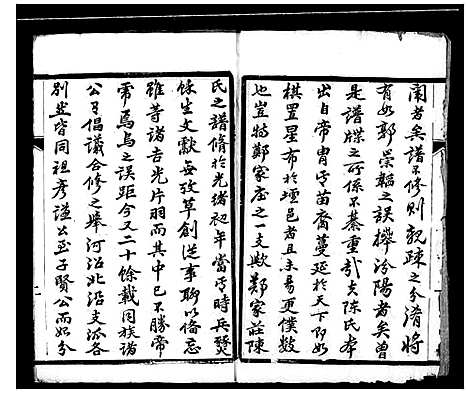 南者矣譜不修則親疎之分淆將
有如郭宗韜之誤攀汾陽者矣曾
是譜牒之所係不綦重哉夫陳氏本
出自帝胄兮苗裔蔓延於天下即如
棋置星布於壇邑者且未易更僕數
也豈特鄭家庄之一支歟鄭家莊陳
氏之譜脩於光緒初年當兮時兵燹
餘生文獻無攷草創從事聊以備忘
雖等諸吉光片羽而其中已不勝帝
虎焉烏之誤距今又二十餘載同族諸
公有倡議合修之舉河沿北沿支派各
別並皆同祖彥謐公至子賢公而始分
一